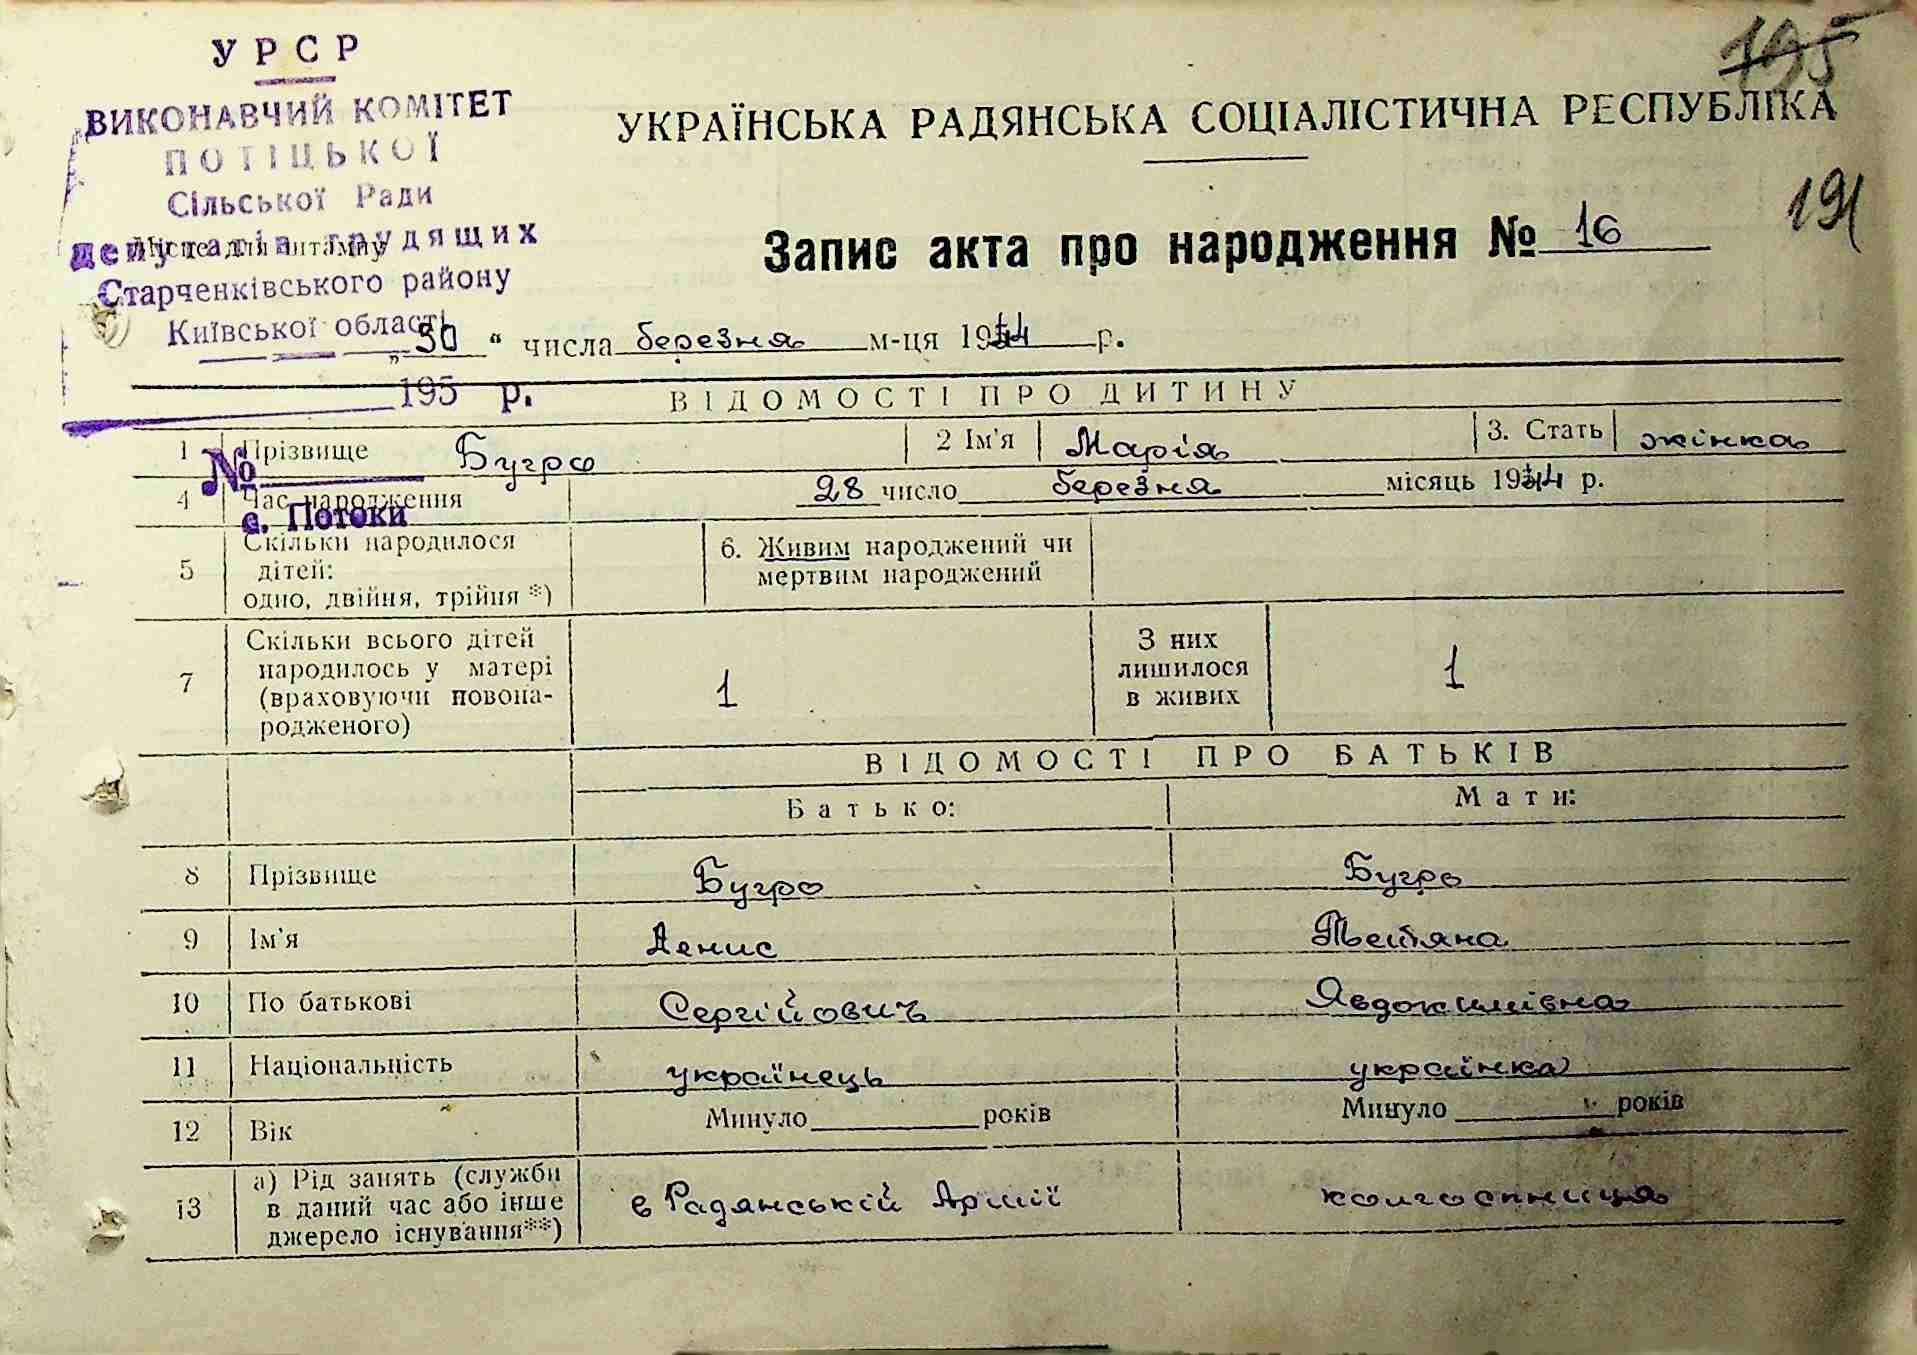 УРСР
ВИКОНАВЧИЙ КОМІТЕТ
ПОТІЦЬКОЇ
Сільської Ради
депутатів трудящих
Місце для штампу
Старченківського району
Київської області
195 р.
№
с. Потоки
195
191
УКРАЇНСЬКА РАДЯНСЬКА СОЦІАЛІСТИЧНА РЕСПУБЛІКА
Запис акта про народження № 16
„30“ числа березня м-ця 1944 р.
ВІДОМОСТІ ПРО ДИТИНУ
1 Прізвище Бугро 2 Ім'я Марія 3. Стать жінка
4 Час народження 28 число березня місяць 1944 р.
5 Скільки народилося дітей: одно, двійня, трійня *) 6. Живим народжений чи мертвим народжений
7 Скільки всього дітей народилось у матері (враховуючи новонародженого) 1 З них лишилося в живих 1
ВІДОМОСТІ ПРО БАТЬКІВ
Батько: Мати:
8 Прізвище Бугро Бугро
9 Ім'я Денис Тетяна
10 По батькові Сергійович Явдокимівна
11 Національність українець українка
12 Вік Минуло років Минуло років
13 а) Рід занять (служби в даний час або інше джерело існування**) в Радянській Армії колгоспниця